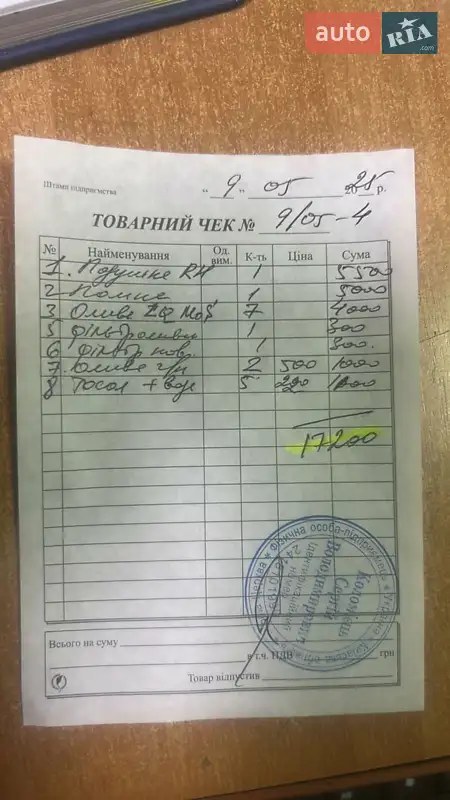 auto RIA .com
Штамп підприємства
" 9 " 05 2025 р.
ТОВАРНИЙ ЧЕК № 9/05-4
№ Найменування Од. вим. К-ть Ціна Сума
1. Подушка RH 1 5500
2 Помпа 1 5000
3 Олива 7 4000
5 фільтр оливи 1 300
6 фільтр пов. 1 300.
7. Олива г/п 2 500 1000
8 Тосол + вода 5 220
17200
Всього на суму
в т.ч. ПДВ грн
Товар відпустив
Фізична особа-підприємець
Коломієць
Сергій
Володимирович